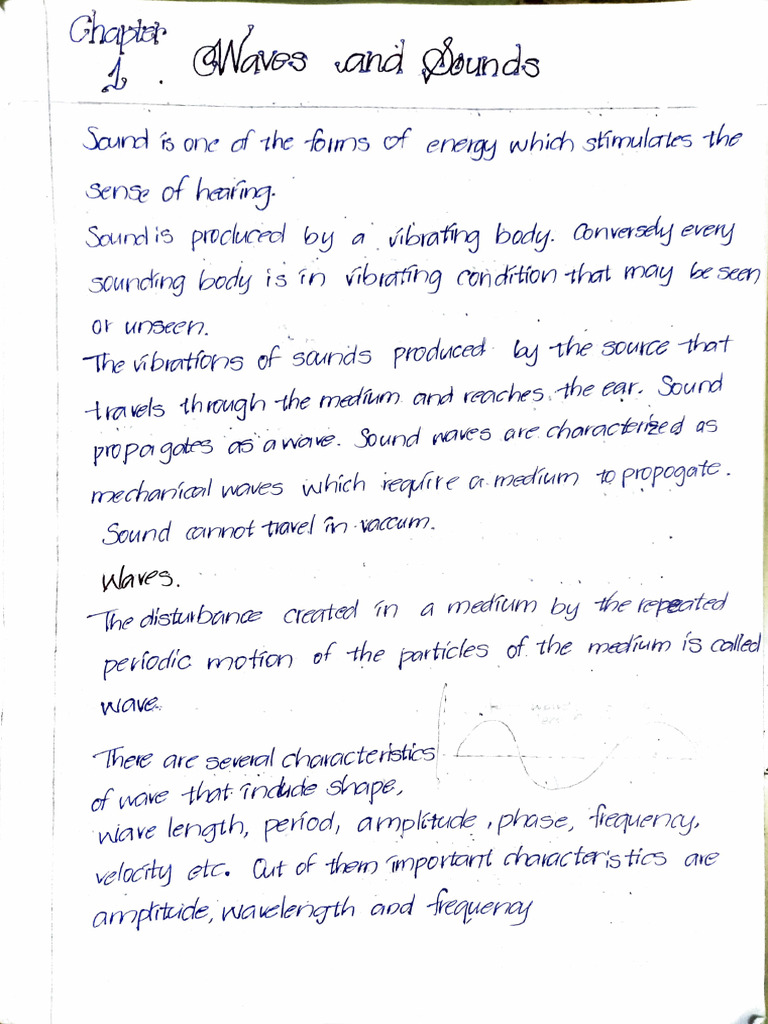 Chapter
1. Waves and Sounds
Sound is one of the forms of energy which stimulates the
sense of hearing.
Sound is produced by a vibrating body. Conversely every
sounding body is in vibrating condition that may be seen
or unseen.
The vibrations of sounds produced by the source that
travels through the medium and reaches the ear. Sound
propagates as a wave. Sound waves are characterized as
mechanical waves which require a medium to propogate.
Sound cannot travel in vaccum.
Waves.
The disturbance created in a medium by the repeated
periodic motion of the particles of the medium is called
wave.
There are several characteristics
of wave that include shape,
wave length, period, amplitude, phase, frequency,
velocity etc. Out of them important characteristics are
amplitude, wavelength and frequency